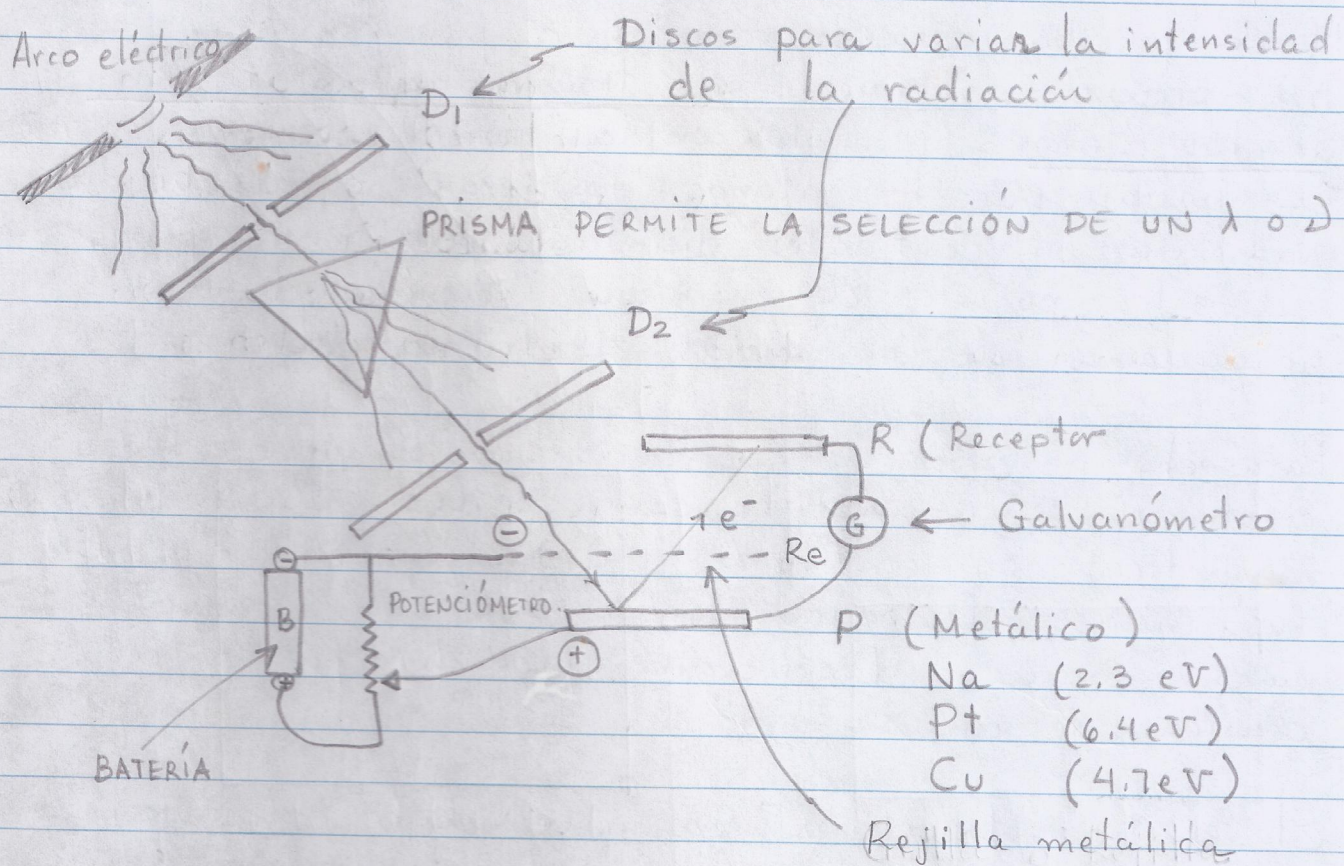 Arco eléctrico
Discos para variar la intensidad
de la radiación
D1
PRISMA PERMITE LA SELECCIÓN DE UN λ o ν
D2
R (Receptor
e-
G
Galvanómetro
−
Re
−
B
POTENCIÓMETRO.
+
+
P (Metálico)
Na (2.3 eV)
Pt (6.4 eV)
Cu (4.7 eV)
BATERÍA
Rejilla metálica